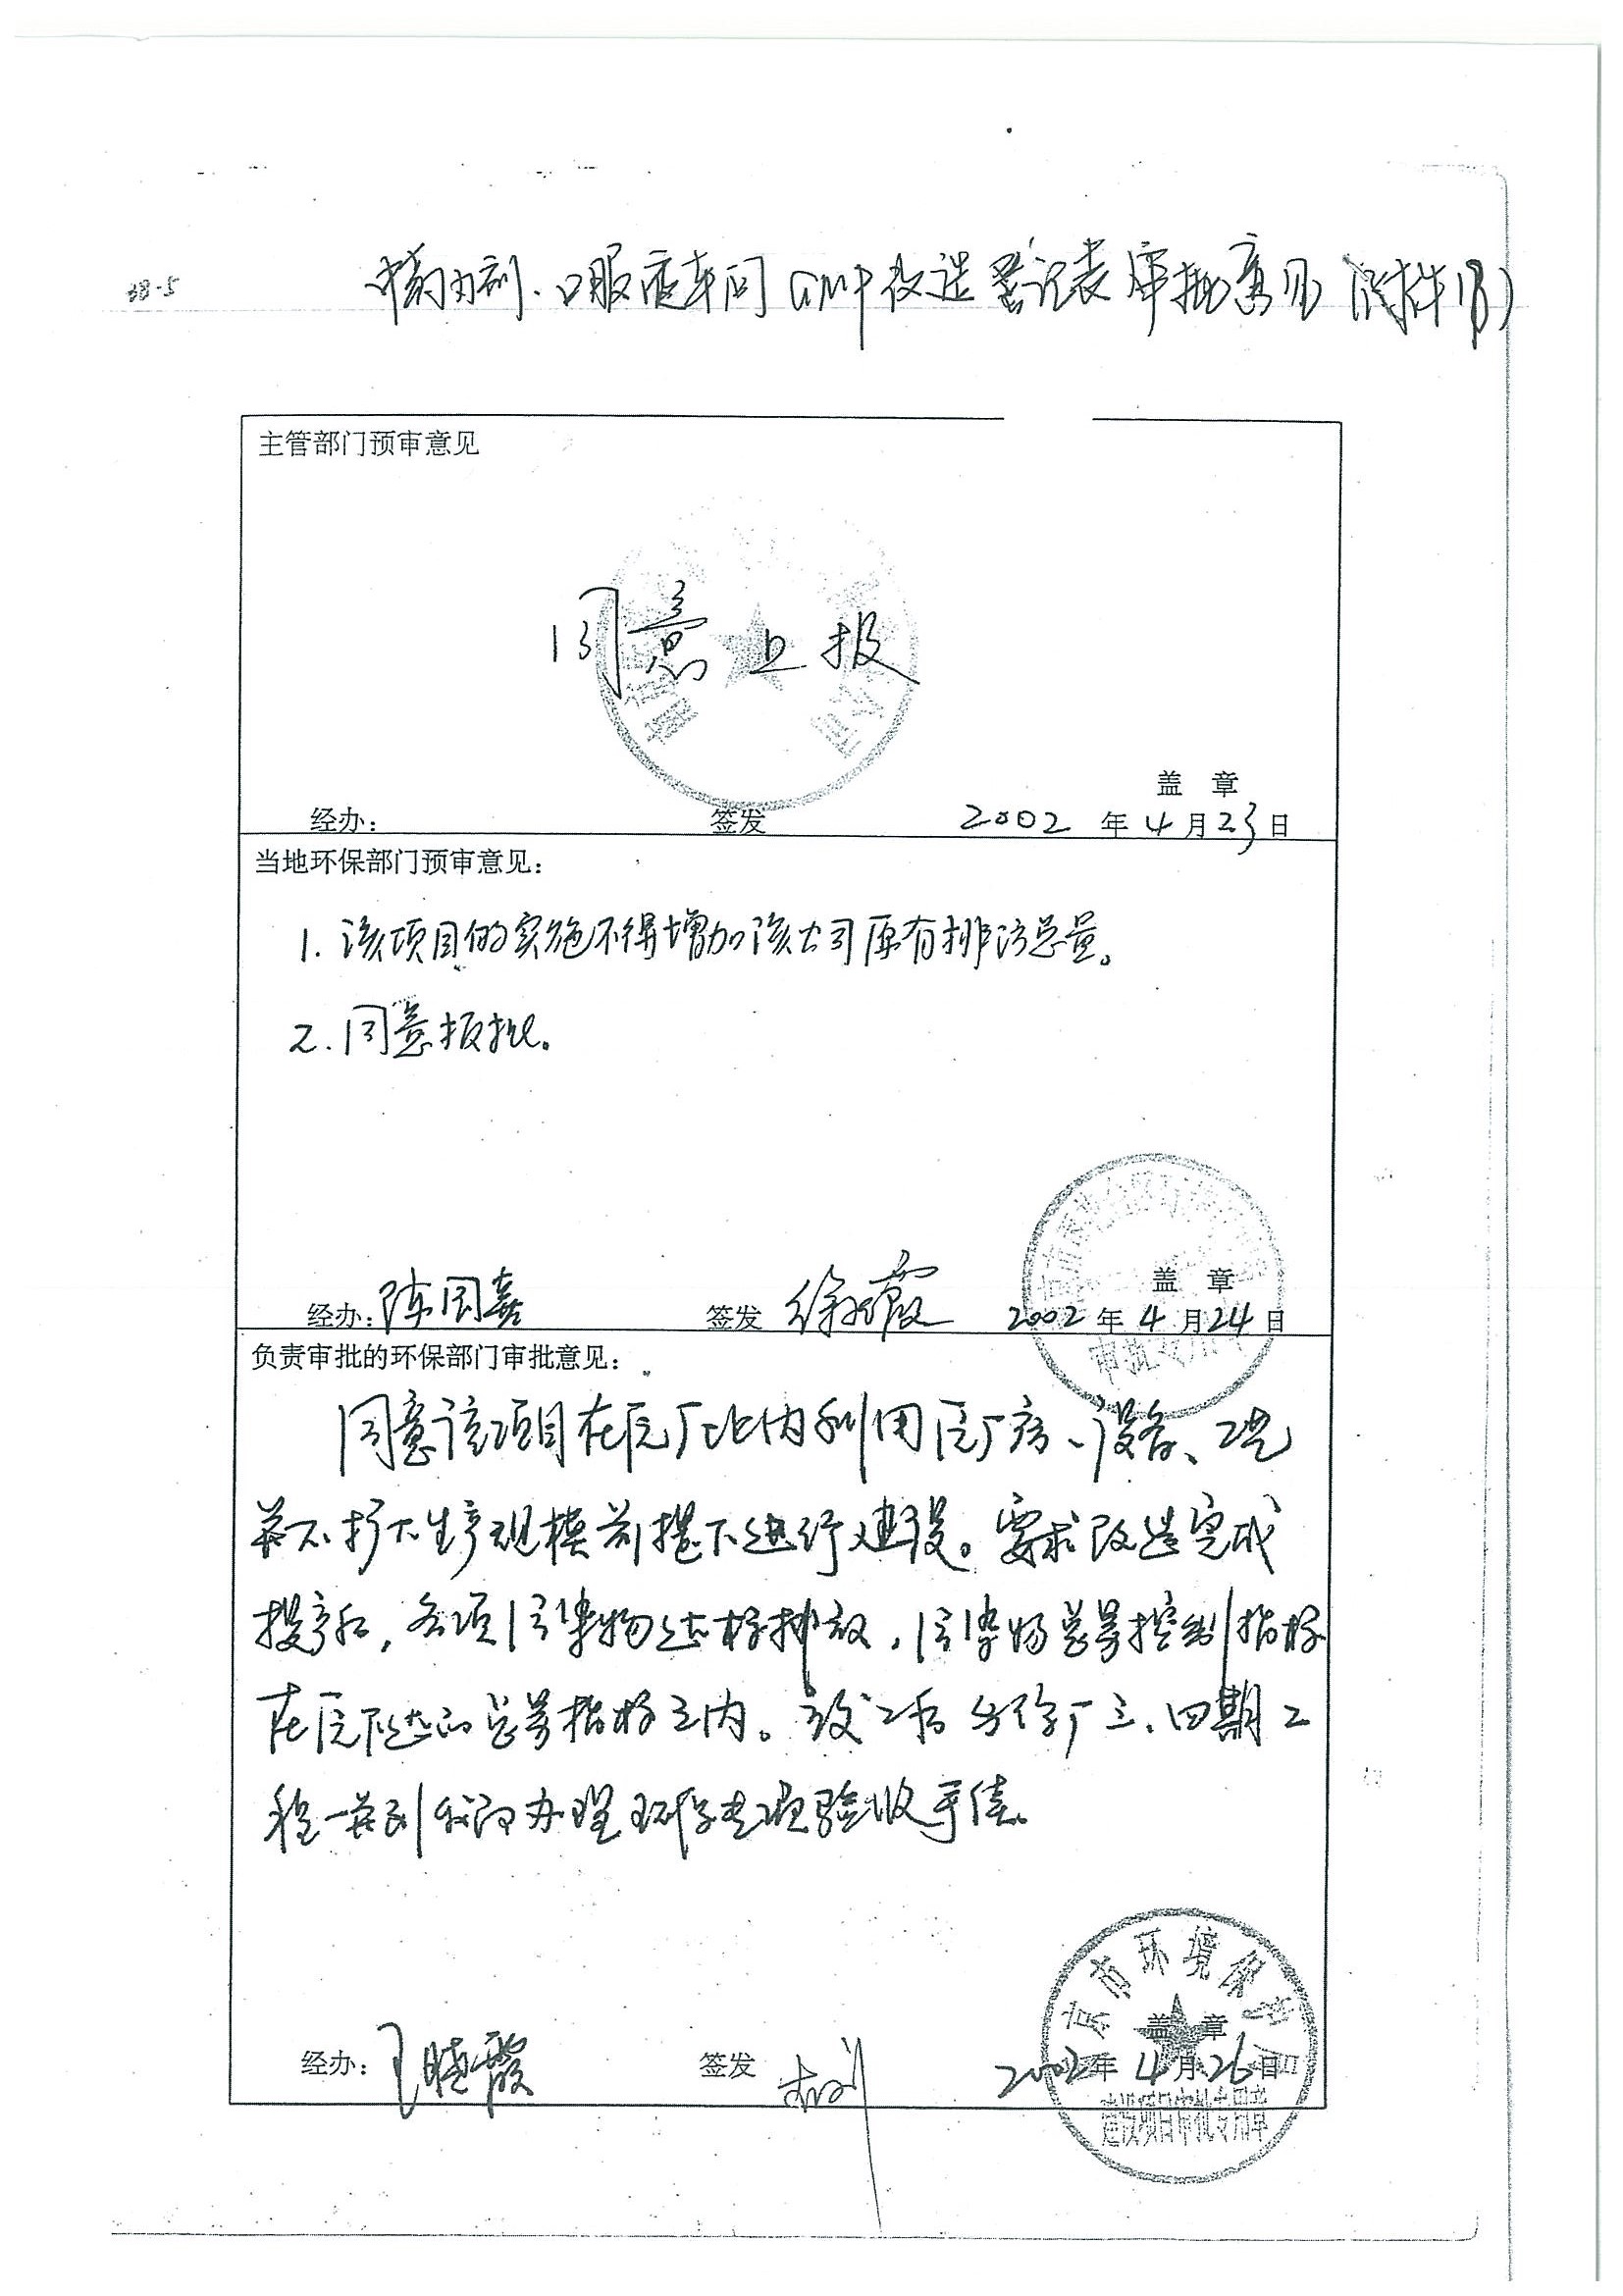 38-5
口服液车间GMP改造登记表审批意见(附件13)
主管部门预审意见
同意上报
盖 章
经办: 签发 2002 年 4 月 23 日
当地环保部门预审意见:
1. 该项目的实施不得增加该公司原有排污总量。
2. 同意报批。
盖 章
经办: 签发 2002 年 4 月 24 日
审批专用章
负责审批的环保部门审批意见:
同意该项目在原厂址内利用原厂房、设备、工艺
并不扩大生产规模前提下进行建设。要求改造完成
投产后,各项污染物达标排放,污染物总量控制指标
在原下达的总量指标之内。竣工后 三、四期工
程一并到我局办理环保专项验收手续。
京市环境保
盖 章
经办: 王晓霞 签发 2002 年 4 月 26 日
建设项目审批专用章